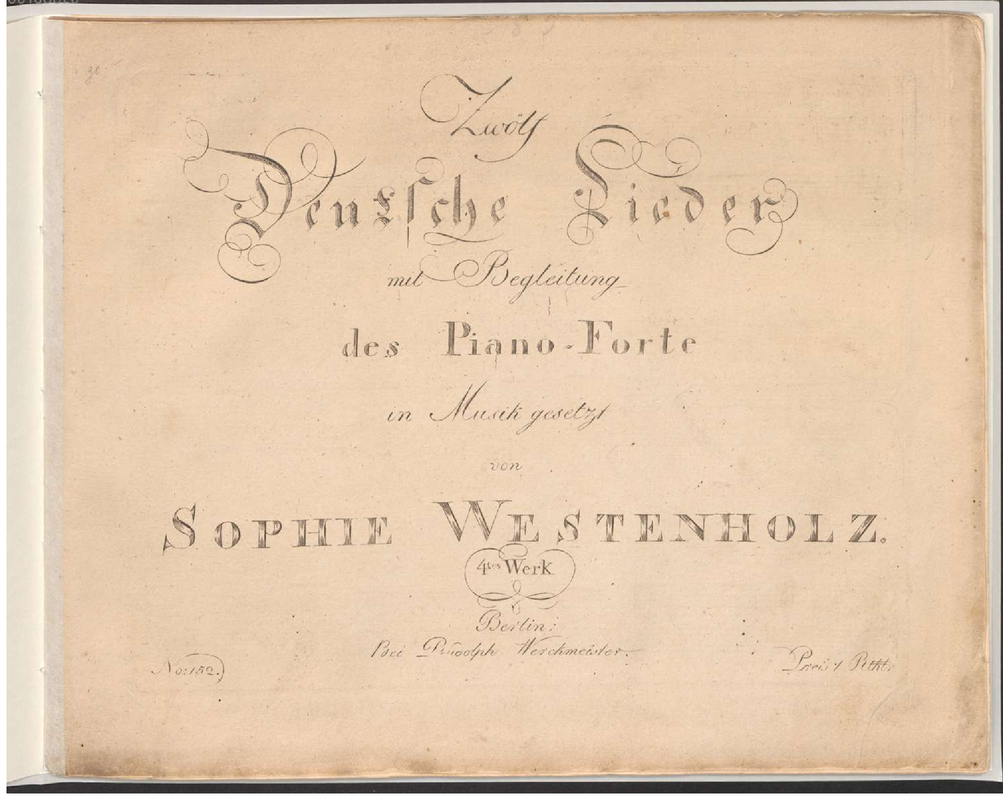 Zwölf
Deutsche Lieder
mit Begleitung
des Piano-Forte
in Musik gesetzt
von
SOPHIE WESTENHOLZ.
4tes Werk
Berlin:
Bei Rudolph Werckmeister.
No: 152.
Preis 1 Rthlr